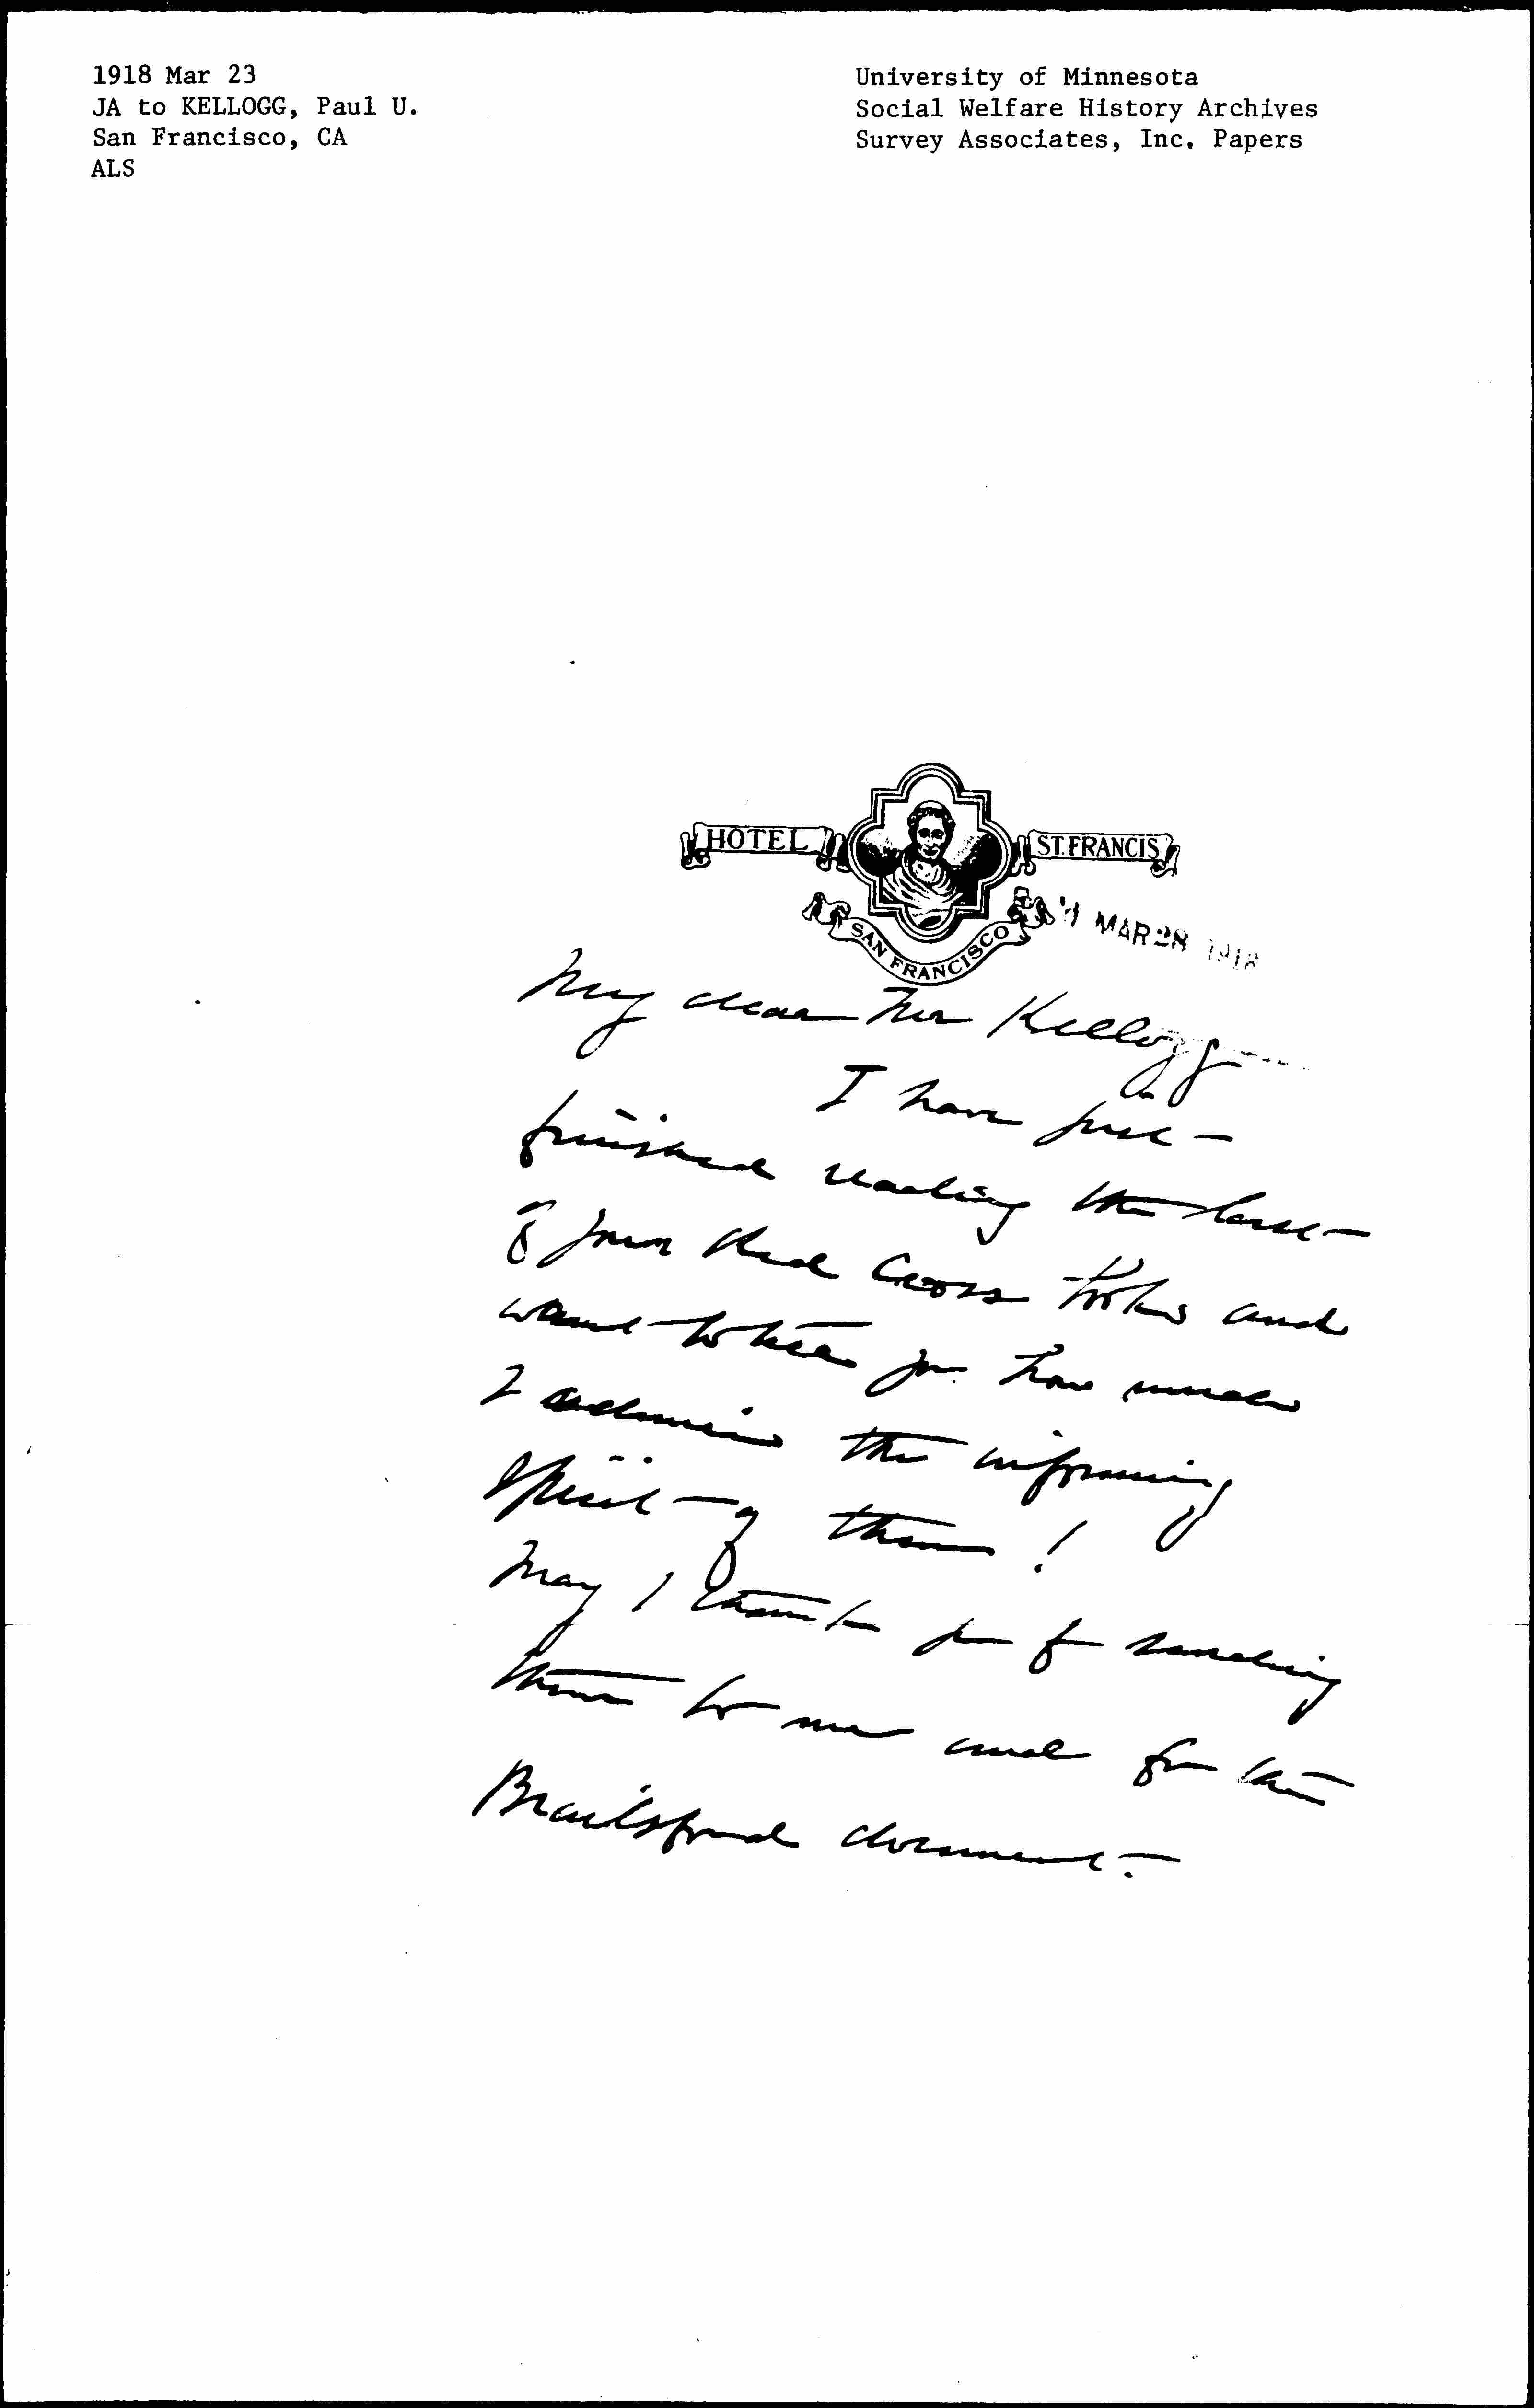 1918 Mar 23
JA to KELLOGG, Paul U.
San Francisco, CA
ALS
University of Minnesota
Social Welfare History Archives
Survey Associates, Inc. Papers
HOTEL ST. FRANCIS
SAN FRANCISCO
'd MAR 28 1918
My dear Mr Kellogg
I have just
finished reading the last
of your Red Cross books and
want to tell you how much
I admire the informing
spirit of them!
May I thank you for sending
them to me and for the
Brailsford document.